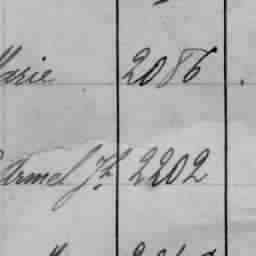 Marie 2086
Armel Jh 2202